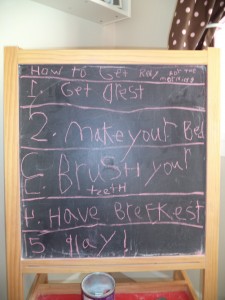 How to Get Redy for the morning
1. Get drest
2. make your Bed
3. Brush your
teetH
4. Have Brefkest
5 play!